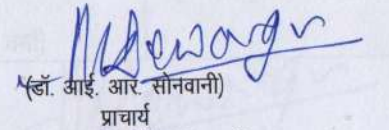 (डॉ. आई. आर. सोनवानी)
प्राचार्य